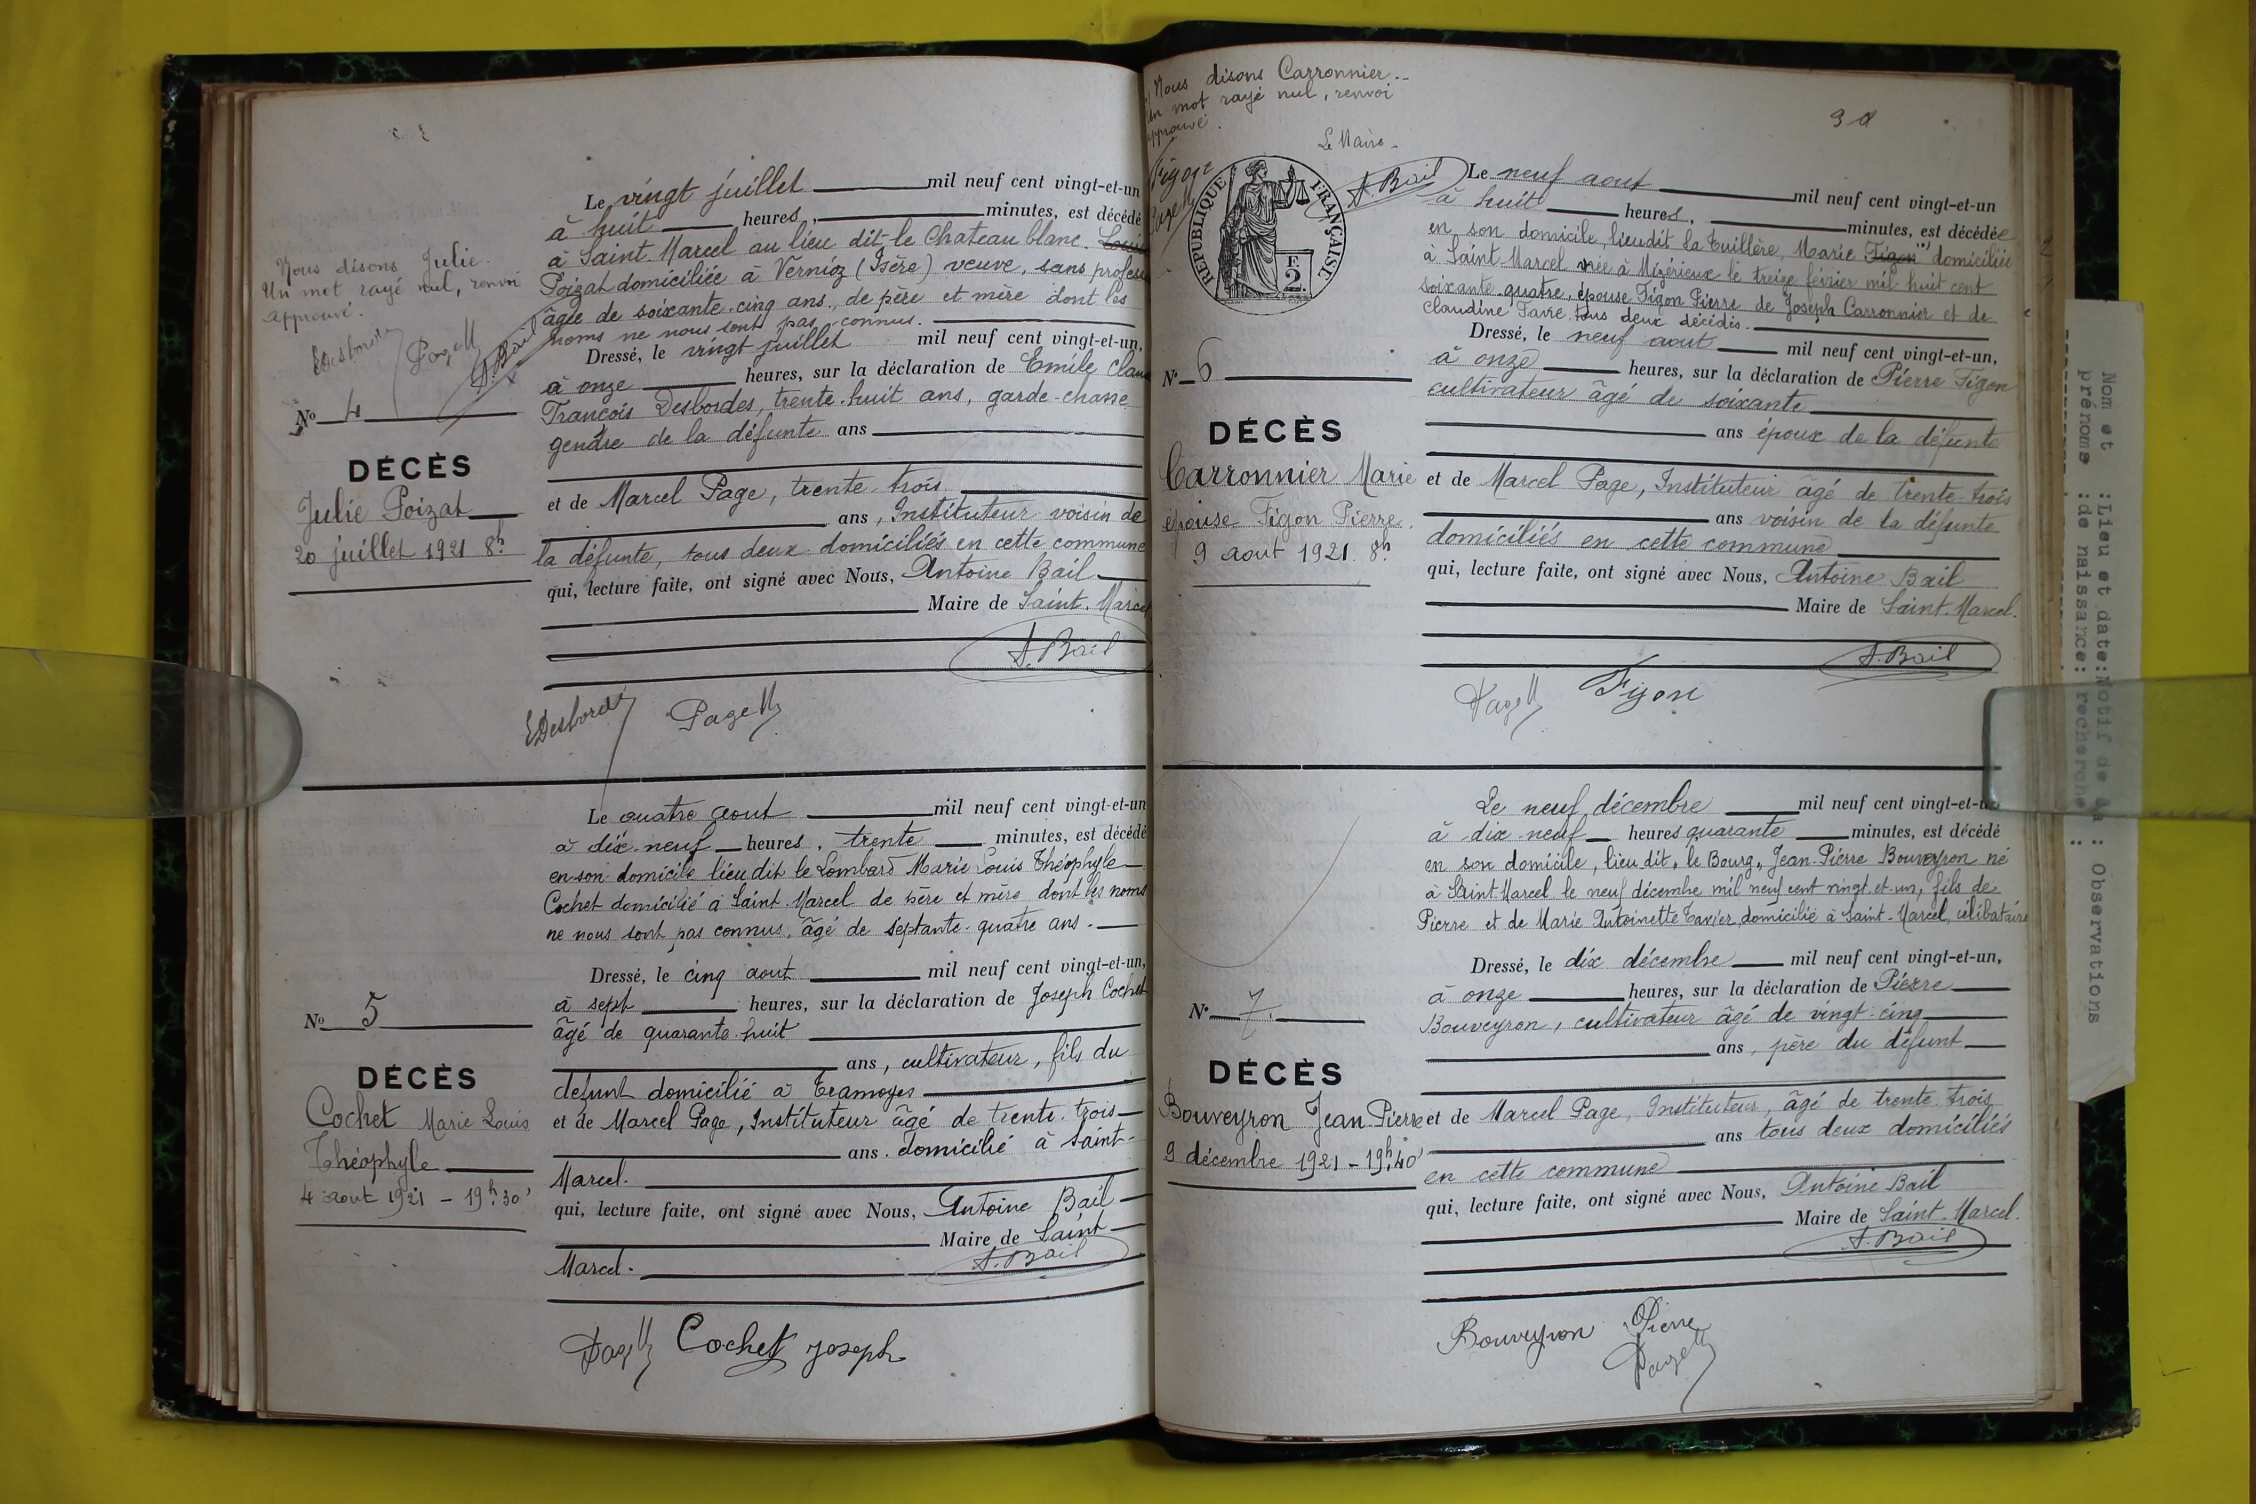 Nous disons Julie.
Un mot rayé nul, renvoi
approuvé.
EDesbordes
Page
A. Bail
No 4
DÉCÈS
Julie Poizat
20 juillet 1921 8h
Le vingt juillet mil neuf cent vingt-et-un
à huit heures, minutes, est décédé
à Saint-Marcel au lieu dit le Chateau blanc. Louise
Poizat domiciliée à Vernioz (Isère) veuve, sans profession
âgée de soixante-cinq ans, de père et mère dont les
noms ne nous sont pas connus.
Dressé, le vingt juillet mil neuf cent vingt-et-un,
à onze heures, sur la déclaration de Emile Claude
François Desbordes, trente-huit ans, garde-chasse
gendre de la défunte ans
et de Marcel Page, trente-trois
ans, Instituteur voisin de
la défunte, tous deux domiciliés en cette commune
qui, lecture faite, ont signé avec Nous, Antoine Bail
Maire de Saint-Marcel
A. Bail
EDesbordes Page
No 5
DÉCÈS
Cochet Marie Louis
Théophyle
4 aout 1921 - 19h.30'
Le quatre aout mil neuf cent vingt-et-un
à dix-neuf heures, trente minutes, est décédé
en son domicile lieu dit le Lombard Marie Louis Théophyle
Cochet domicilié à Saint-Marcel de père et mère dont les noms
ne nous sont pas connus, âgé de septante-quatre ans.
Dressé, le cinq aout mil neuf cent vingt-et-un,
à sept heures, sur la déclaration de Joseph Cochet
âgé de quarante-huit
ans, cultivateur, fils du
defunt domicilié à Tramoyes
et de Marcel Page, Instituteur âgé de trente-trois
ans. domicilié à Saint-
Marcel.
qui, lecture faite, ont signé avec Nous, Antoine Bail
Maire de Saint
Marcel.
A. Bail
Page Cochet Joseph
Nous disons Carronnier.
Un mot rayé nul, renvoi
approuvé.
Le Maire
Figon
Page
A. Bail
RÉPUBLIQUE FRANÇAISE
F.
2.
No 6
DÉCÈS
Carronnier Marie
épouse Figon Pierre.
9 aout 1921 8h
Le neuf aout mil neuf cent vingt-et-un
à huit heures, minutes, est décédée
en son domicile, lieu dit la Tuillère, Marie Figon domiciliée
à Saint Marcel née à Mizérieux le treize février mil huit cent
soixante-quatre, épouse Figon Pierre de Joseph Carronnier et de
Claudine Favre tous deux décédés.
Dressé, le neuf aout mil neuf cent vingt-et-un,
à onze heures, sur la déclaration de Pierre Figon
cultivateur âgé de soixante
ans époux de la défunte
et de Marcel Page, Instituteur âgé de trente-trois
ans voisin de la défunte
domiciliés en cette commune
qui, lecture faite, ont signé avec Nous, Antoine Bail
Maire de Saint-Marcel.
A. Bail
Page Figon
No 7.
DÉCÈS
Bouveyron Jean Pierre
9 décembre 1921 - 19h.40'
Le neuf décembre mil neuf cent vingt-et-un
à dix-neuf heures quarante minutes, est décédé
en son domicile, lieu dit „le Bourg„ Jean-Pierre Bouveyron né
à Saint Marcel le neuf décembre mil neuf cent vingt-et-un, fils de
Pierre et de Marie Antoinette Tavier, domicilié à Saint-Marcel, célibataire
Dressé, le dix décembre mil neuf cent vingt-et-un,
à onze heures, sur la déclaration de Pierre
Bouveyron, cultivateur âgé de vingt-cinq
ans, père du défunt
et de Marcel Page, Instituteur, âgé de trente-trois
ans tous deux domiciliés
en cette commune
qui, lecture faite, ont signé avec Nous, Antoine Bail
Maire de Saint-Marcel.
A. Bail
Bouveyron Pierre
Page
Nom et :Lieu et date:Motif de la : Observations
prénoms :de naissance:recherche :